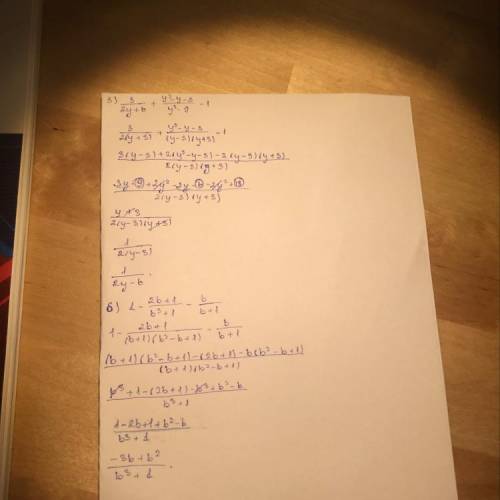 5) 3/(2y+6) + (y²-y-3)/(y²-9) - 1
3/(2(y+3)) + (y²-y-3)/((y-3)(y+3)) - 1
(3(y-3)+2(y²-y-3)-2(y-3)(y+3))/(2(y-3)(y+3))
(3y-9+2y²-2y-6-2y²+18)/(2(y-3)(y+3))
(y+3)/(2(y-3)(y+3))
1/(2(y-3))
1/(2y-6).
6) 1 - (2b+1)/(b³+1) - b/(b+1)
1 - (2b+1)/((b+1)(b²-b+1)) - b/(b+1)
((b+1)(b²-b+1)-(2b+1)-b(b²-b+1))/((b+1)(b²-b+1))
(b³+1-(2b+1)-b³+b²-b)/(b³+1)
(1-2b+1+b²-b)/(b³+1)
(-3b+b²)/(b³+1).